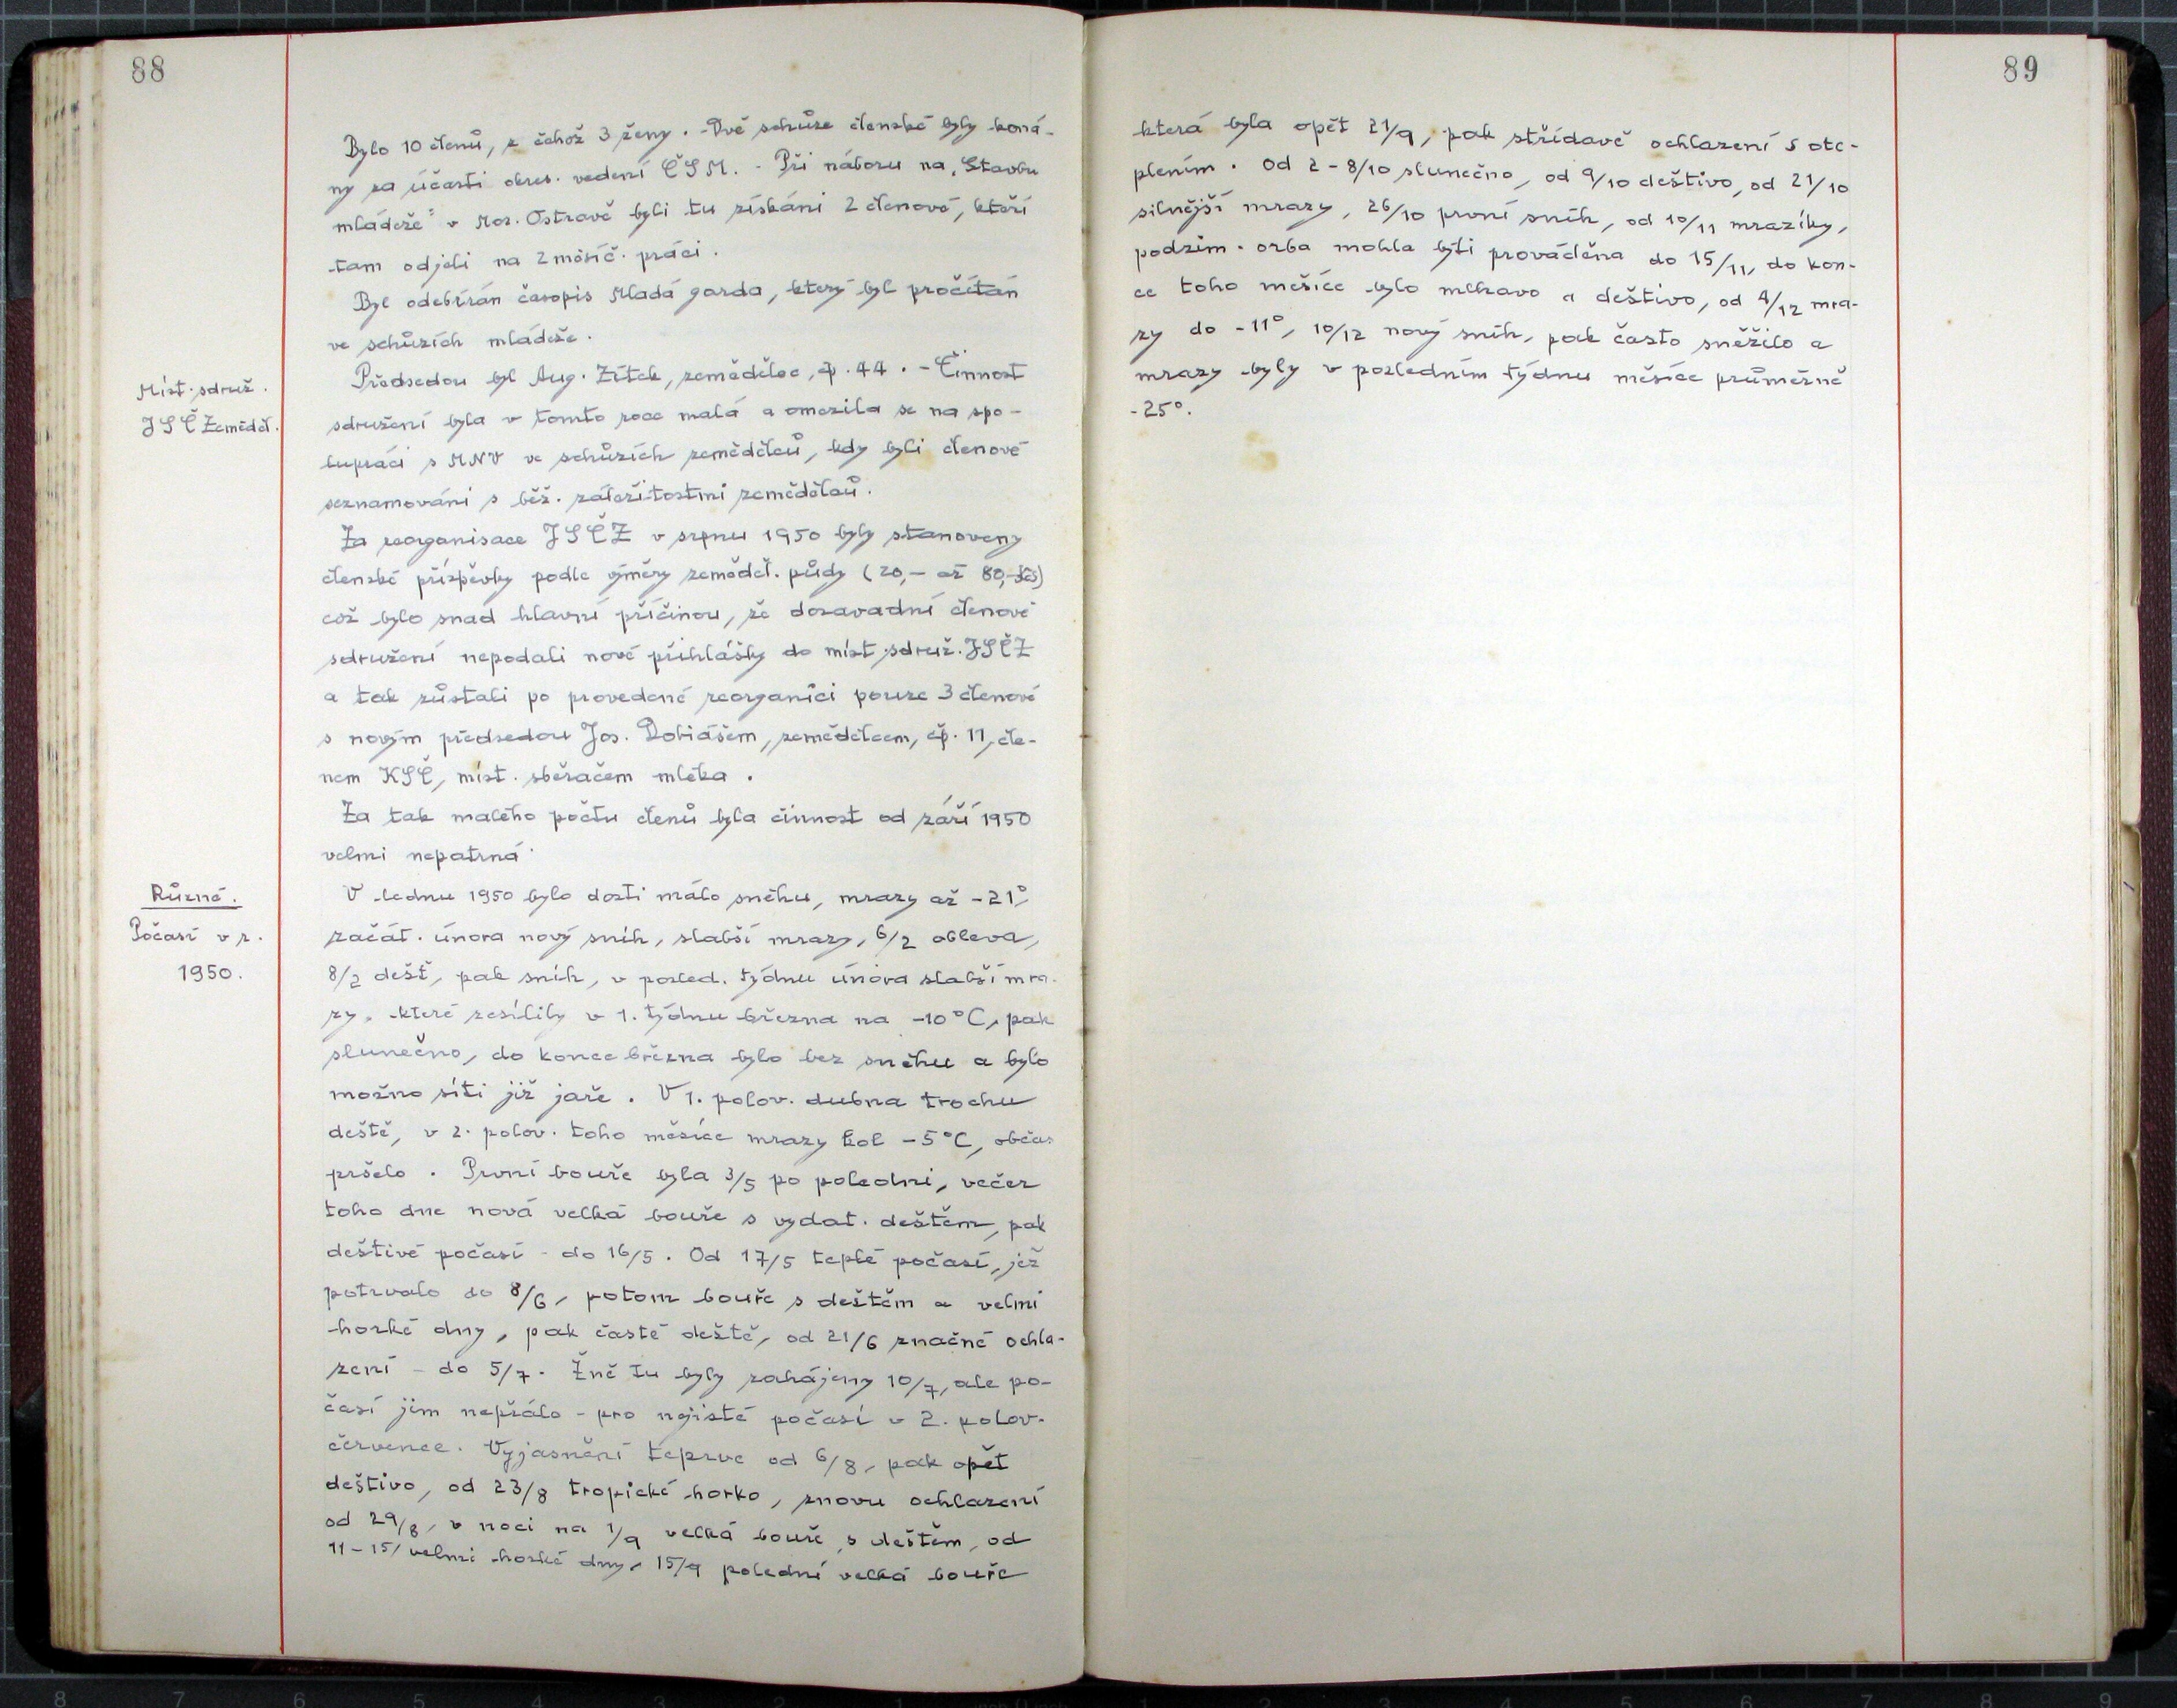 88
Bylo 10 členů, z čehož 3 ženy. - Dvě schůze členské byly koná-
ny za účasti okres. vedení ČSM. - Při náboru na „Stavbu
mládeže" v Mor. Ostravě byli tu získáni 2 členové, kteří
tam odjeli na 2 měsíč. práci.
Byl odebírán časopis Mladá garda, který byl pročítán
ve schůzích mládeže.
Míst. sdruž.
JSČ Zeměděl.
Předsedou byl Aug. Zítek, zemědělec, čp. 44. - Činnost
sdružení byla v tomto roce malá a omezila se na spo-
lupráci s MNV ve schůzích zemědělců, kdy byli členové
seznamováni s běž. záležitostmi zemědělců.
Za reorganisace JSČZ v srpnu 1950 byly stanoveny
členské příspěvky podle výměry zeměděl. půdy (20,- až 80,- Kčs)
což bylo snad hlavní příčinou, že dosavadní členové
sdružení nepodali nové přihlášky do míst. sdruž. JSČZ
a tak zůstali po provedené reorganici pouze 3 členové
s novým předsedou Jos. Dobiášem, zemědělcem, čp. 11, čle-
nem KSČ, míst. sběračem mléka.
Za tak malého počtu členů byla činnost od září 1950
velmi nepatrná.
Různé.
Počasí v r.
1950.
V lednu 1950 bylo dosti málo sněhu, mrazy až -21°,
začát. února nový sníh, slabší mrazy, 6/2 obleva,
8/2 déšť, pak sníh, v posled. týdnu února slabší mra-
zy, které zesílily v 1. týdnu března na -10°C, pak
slunečno, do konce března bylo bez sněhu a bylo
možno síti již jaře. V 1. polov. dubna trochu
deště, v 2. polov. toho měsíce mrazy kol -5°C, občas
pršelo. První bouře byla 3/5 po poledni, večer
toho dne nová velká bouře s vydat. deštěm, pak
deštivé počasí - do 16/5. Od 17/5 teplé počasí, jež
potrvalo do 8/6, potom bouře s deštěm a velmi
horké dny, pak časté deště, od 21/6 značné ochla-
zení - do 5/7. Žně tu byly zahájeny 10/7, ale po-
časí jim nepřálo - pro nejisté počasí v 2. polov.
července. Vyjasnění teprve od 6/8, pak opět
deštivo, od 23/8 tropické horko, znovu ochlazení
od 29/8, v noci na 1/9 velká bouře s deštěm, od
11-15/ velmi horké dny, 15/9 polední velká bouře
89
která byla opět 21/9, pak střídavě ochlazení s ote-
plením. Od 2-8/10 slunečno, od 9/10 deštivo, od 21/10
silnější mrazy, 26/10 první sníh, od 10/11 mrazíky,
podzim. orba mohla býti prováděna do 15/11, do kon-
ce toho měsíce bylo mlhavo a deštivo, od 4/12 mra-
zy do -11°, 10/12 nový sníh, pak často sněžilo a
mrazy byly v posledním týdnu měsíce průměrně
-25°.